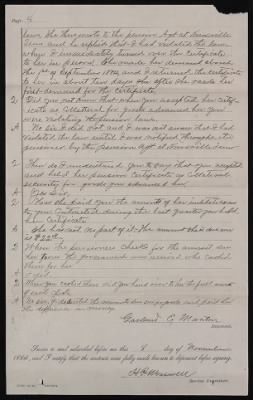 Page 6
her. She then wrote to the pension Agt at Knoxville
Tenn and he replied that I had violated the law
when I immediately turned over the certificate
to her in person. She made her demand about
the 1st of September 1886, and I returned the certificate
to her in about two days she after she made her
first demand for the certificate.
Q Did you not know that when you accepted her certif-
icate as Collateral for goods advanced her you
were violating the pension laws.
A No sir I did not and I was not aware that I had
violated the law until I was notified through the
pensioner by the pension agt at Knoxville Tenn
Q Then do I understand you to say that you accepted
and held her pension certificate as Collateral
security for goods you advanced her.
A Yes Sir,
Q Has she paid you the amount of her indebtedness
to you
her Certificate
A She has not no part of it. The amount she owes me
is $22
Q When the pensioners checks for the amount due
her from the government was received who cashed
them for her
A I did
Q When you cashed them did you hand over to her the full amount
of each check
A No sir, I deducted the amount she owed me and paid her
the difference in money
Garland E Martin
Deponent.
Sworn to and subscribed before me this 8 day of November
188 , and I certify that the contents were fully made known to deponent before signing.
Special Examiner.